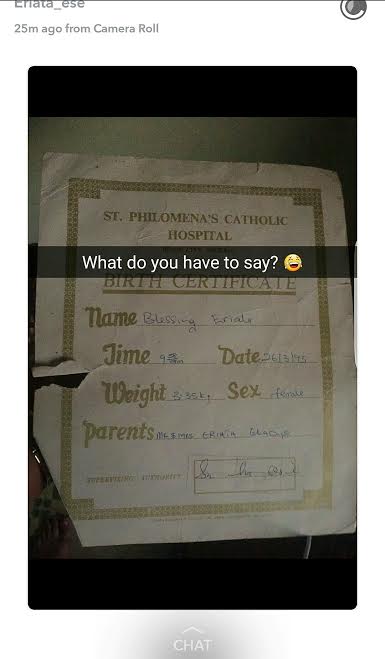 Eriata_ese
25m ago from Camera Roll
ST. PHILOMENA'S CATHOLIC
HOSPITAL
What do you have to say? 😂
BIRTH CERTIFICATE
Name Blessing
Time Date 26/3/95
Weight 3.35k, Sex female
Parents MR & MRS ERIATA GLADYS
SUPERVISING AUTHORITY
CHAT